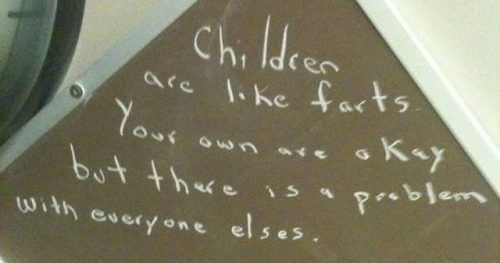 Children
are like farts.
Your own are okay
but there is a problem
with everyone elses.